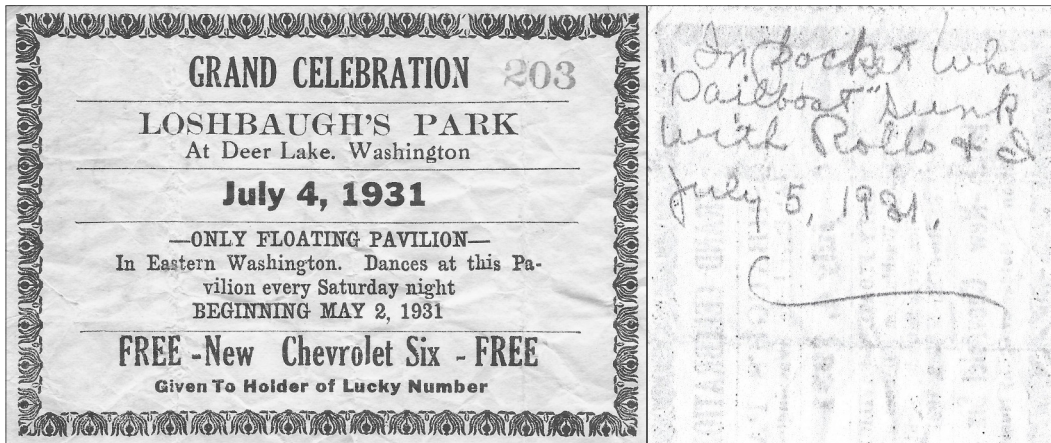 GRAND CELEBRATION 203
LOSHBAUGH'S PARK
At Deer Lake. Washington
July 4, 1931
—ONLY FLOATING PAVILION—
In Eastern Washington. Dances at this Pa-
vilion every Saturday night
BEGINNING MAY 2, 1931
FREE -New Chevrolet Six - FREE
Given To Holder of Lucky Number
"In pocket when
Sailboat" sunk
with Rollo & I
July 5, 1931.